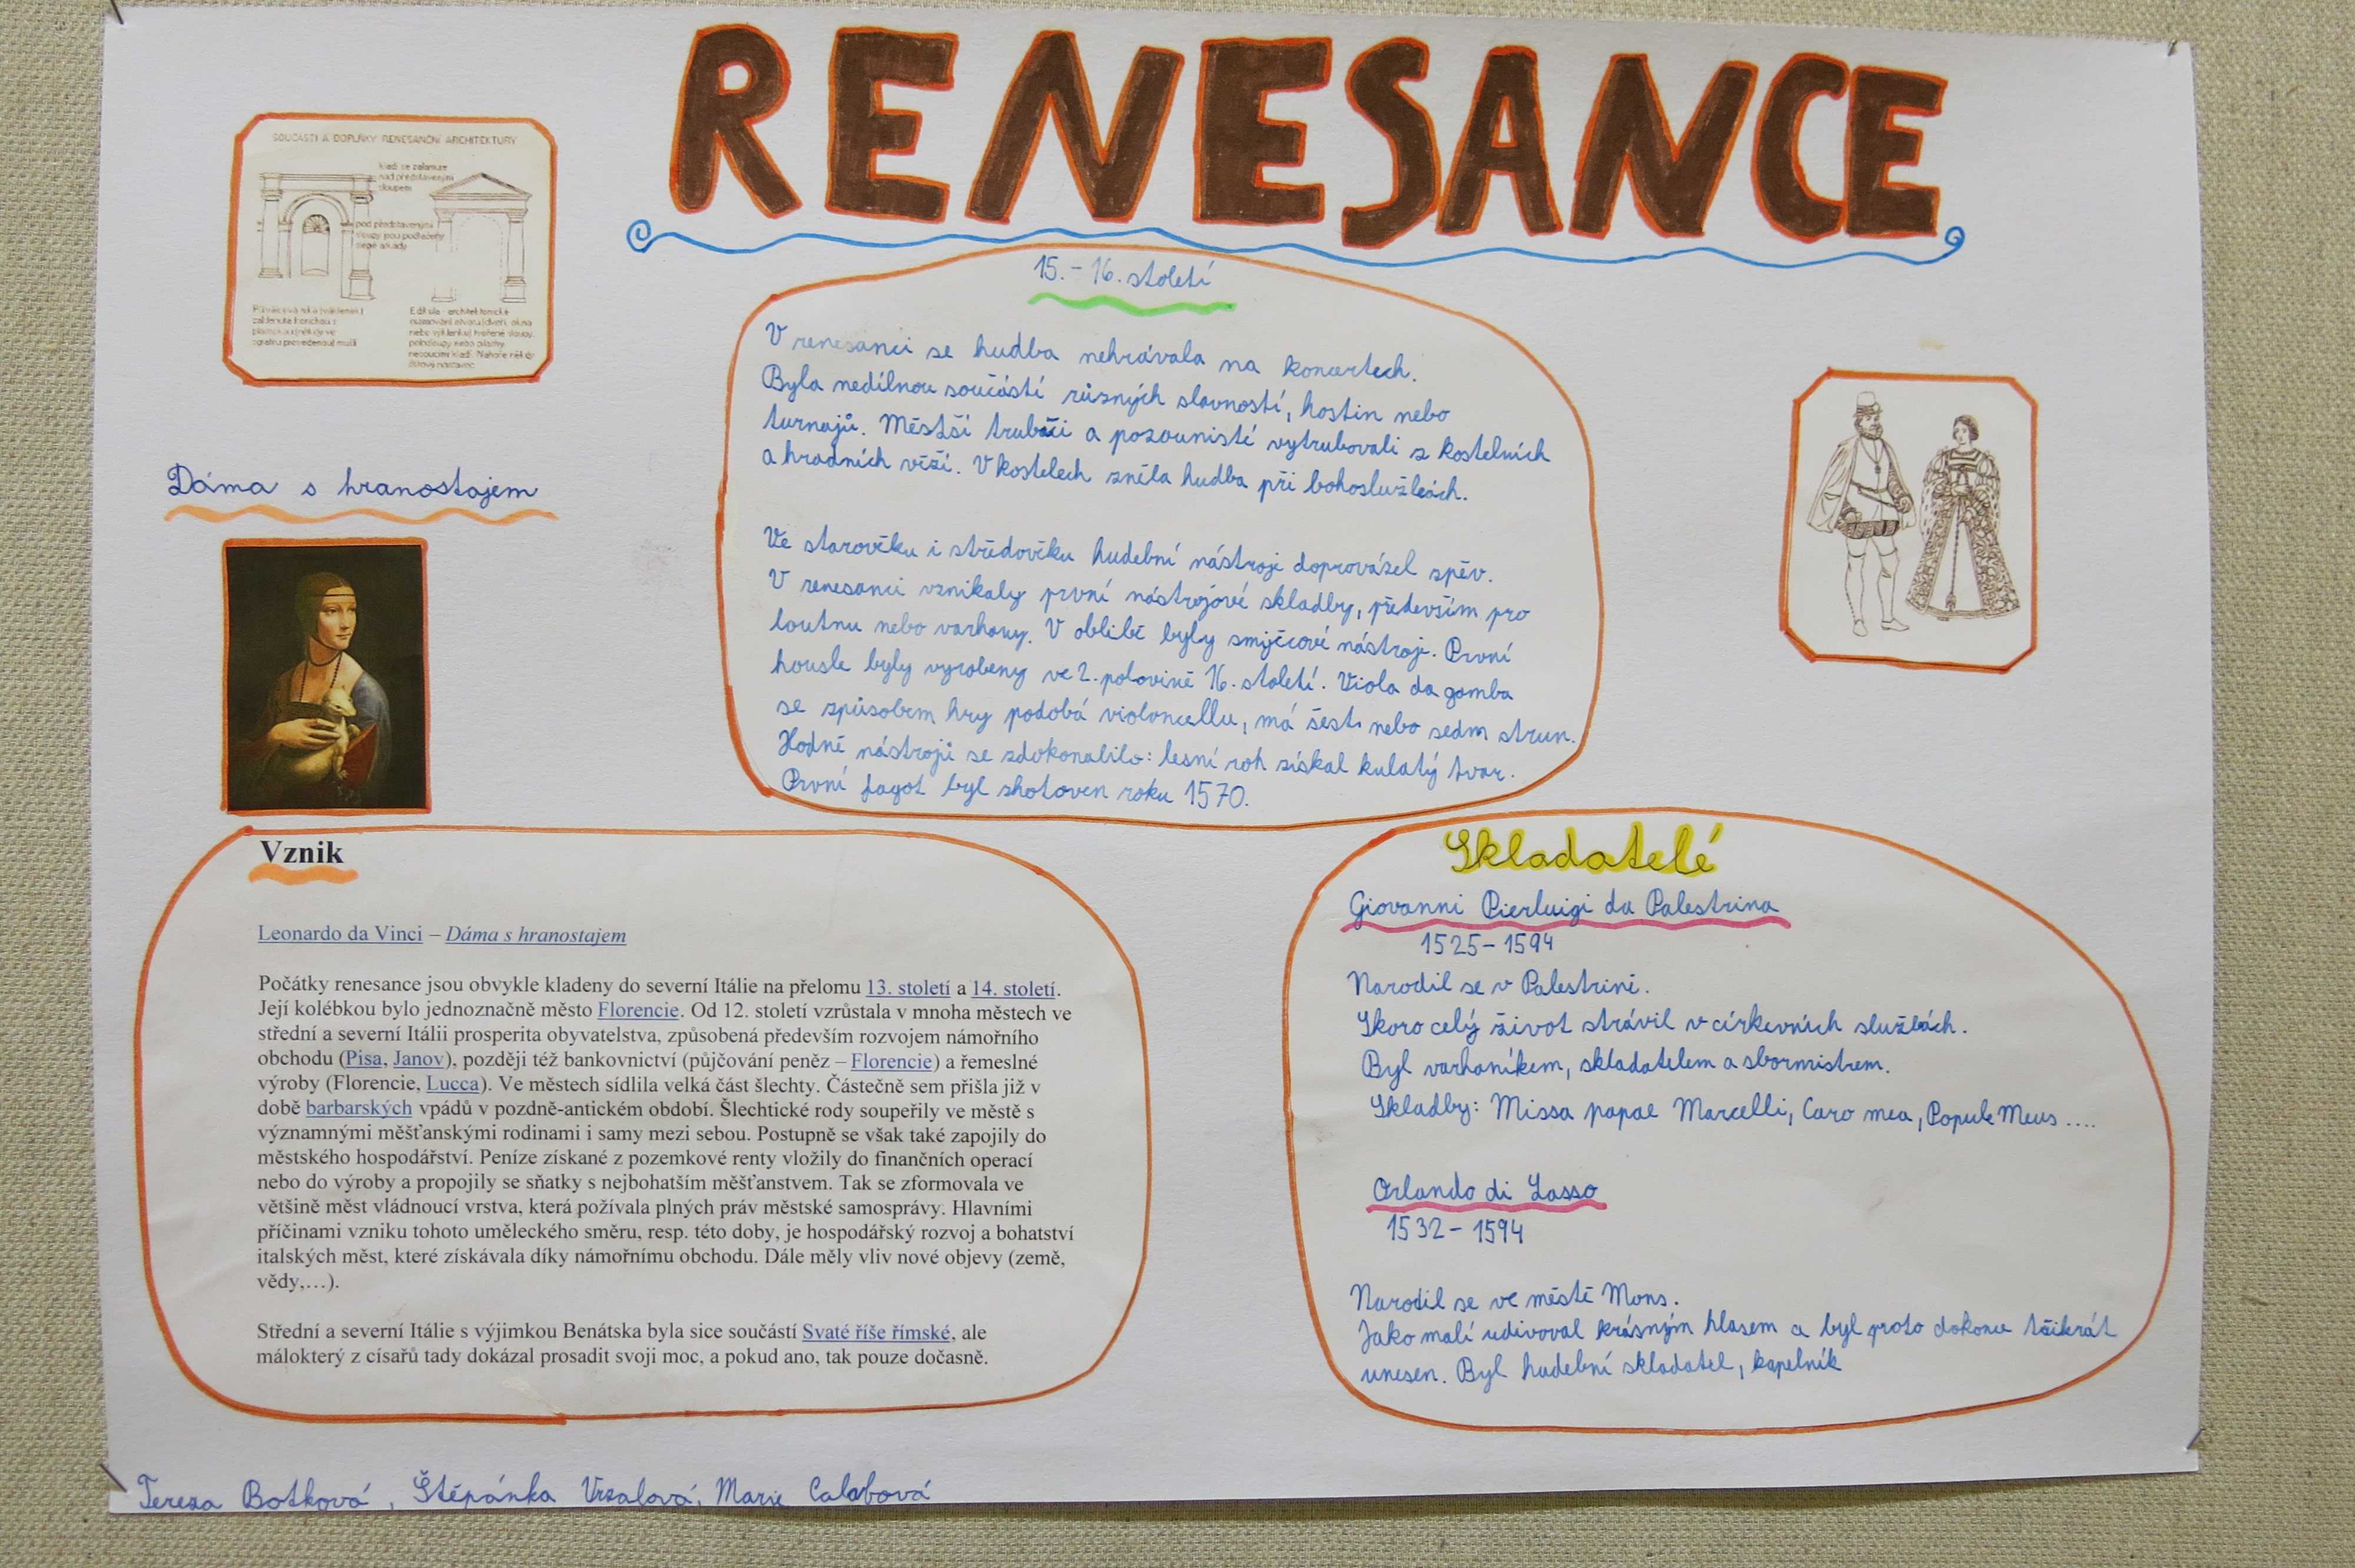 RENESANCE
SOUČÁSTI A DOPLŇKY RENESANČNÍ ARCHITEKTURY
kladí se zalamuje
nad představeným
sloupem
pod představenými
sloupy jsou podloženy
slepé arkády
Edikula - architektonické
nebo
nesoucími kladí. Nahoře
štítový nástavec
Dáma s hranostajem
15.-16. století
V renesanci se hudba nehrávala na koncertech.
Byla nedílnou součástí různých slavností, hostin nebo
turnajů. Městší trubači a pozounisté vytrubovali z kostelních
a hradních věží. V kostelech zněla hudba při bohoslužbách.
Ve starověku i středověku hudební nástroji doprovázel zpěv.
V renesanci vznikaly první nástrojové skladby, především pro
loutnu nebo varhany. V oblibě byly smyčcové nástroji. První
housle byly vyrobeny ve 2. polovině 16. století. Viola da gamba
se způsobem hry podobá violoncellu, má šest nebo sedm strun.
Hodně nástrojů se zdokonalilo: lesní roh získal kulatý tvar.
První fagot byl zhotoven roku 1570.
Vznik
Leonardo da Vinci – Dáma s hranostajem
Počátky renesance jsou obvykle kladeny do severní Itálie na přelomu 13. století a 14. století.
Její kolébkou bylo jednoznačně město Florencie. Od 12. století vzrůstala v mnoha městech ve
střední a severní Itálii prosperita obyvatelstva, způsobená především rozvojem námořního
obchodu (Pisa, Janov), později též bankovnictví (půjčování peněz – Florencie) a řemeslné
výroby (Florencie, Lucca). Ve městech sídlila velká část šlechty. Částečně sem přišla již v
době barbarských vpádů v pozdně-antickém období. Šlechtické rody soupeřily ve městě s
významnými měšťanskými rodinami i samy mezi sebou. Postupně se však také zapojily do
městského hospodářství. Peníze získané z pozemkové renty vložily do finančních operací
nebo do výroby a propojily se sňatky s nejbohatším měšťanstvem. Tak se zformovala ve
většině měst vládnoucí vrstva, která požívala plných práv městské samosprávy. Hlavními
příčinami vzniku tohoto uměleckého směru, resp. této doby, je hospodářský rozvoj a bohatství
italských měst, které získávala díky námořnímu obchodu. Dále měly vliv nové objevy (země,
vědy,…).
Střední a severní Itálie s výjimkou Benátska byla sice součástí Svaté říše římské, ale
málokterý z císařů tady dokázal prosadit svoji moc, a pokud ano, tak pouze dočasně.
Skladatelé
Giovanni Pierluigi da Palestrina
1525-1594
Narodil se v Palestrině.
Skoro celý život strávil v církevních službách.
Byl varhaníkem, skladatelem a sbormistrem.
Skladby: Missa papae Marcelli, Caro mea, Popule Meus ....
Orlando di Lasso
1532-1594
Narodil se ve městě Mons.
Jako malí udivoval krásným hlasem a byl proto dokonce třikrát
unesen. Byl hudební skladatel, kapelník
Tereza Botková, Štěpánka Vrzalová, Marie Calabová